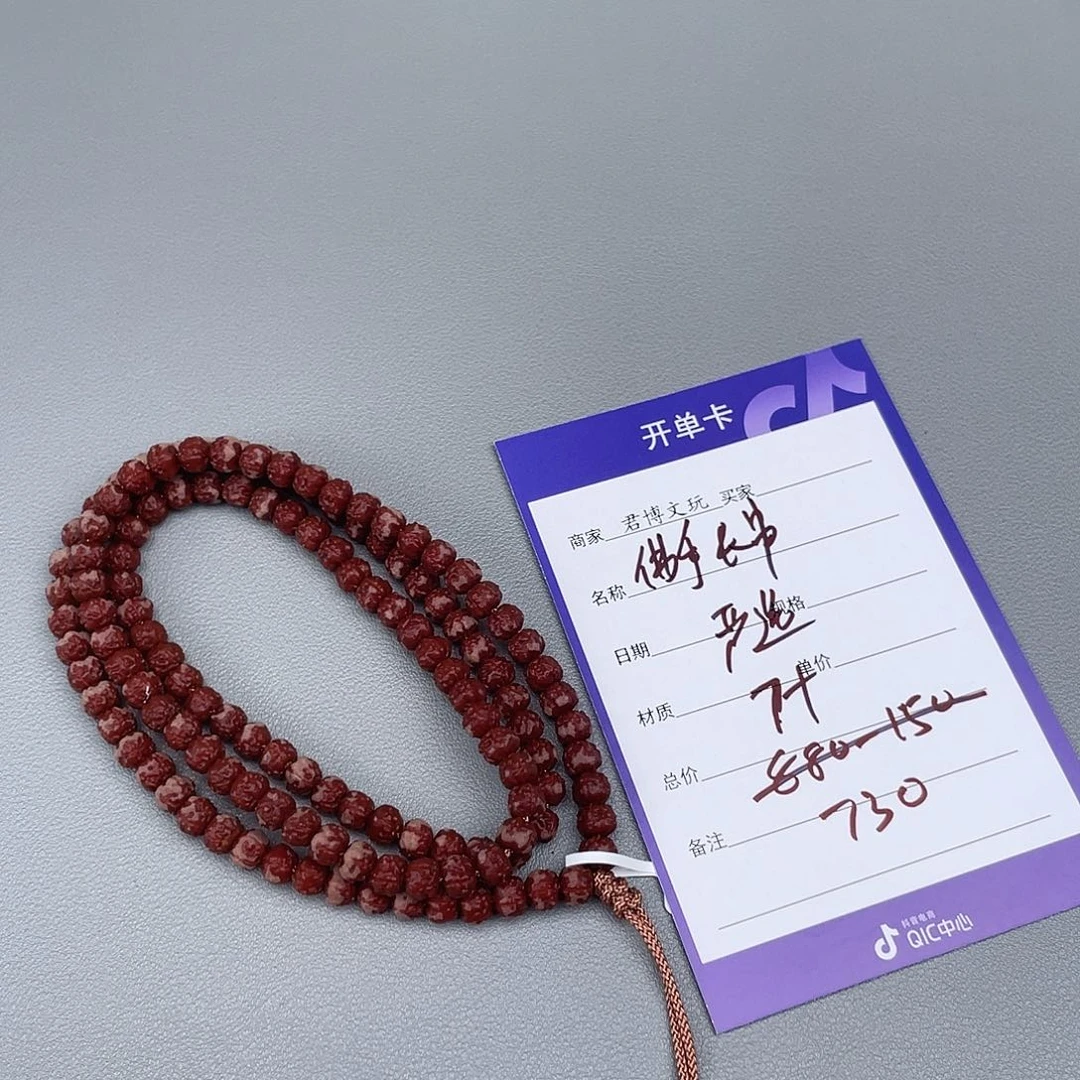 开单卡
商家 君博文玩 买家
名称 佛手长串
日期 严选 规格
材质 7+ 单价
总价 880-150
730
备注
抖音电商
QIC中心